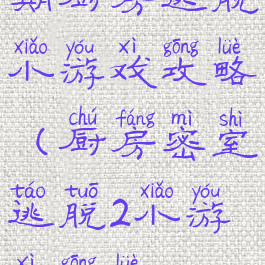 期厨房逃脱
xiǎo yóu xì gōng lüè
小游戏攻略
chú fáng mì shì
（厨房密室
táo tuō xiǎo yóu
逃脱2小游
xì gōng lüè